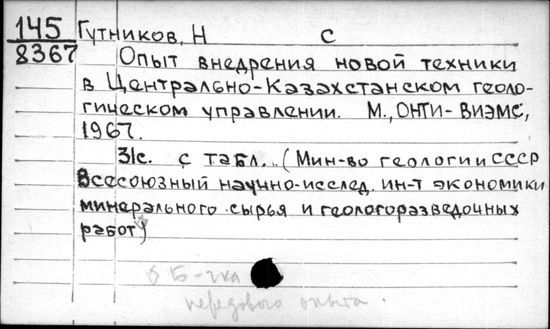 145 Гутников, Н С
8367 Опыт внедрения новой техники
в Центрально-Казахстанском геоло-
гическом управлении. М., ОНТИ-ВИЭМС,
1967.
31с. с табл. (Мин-во геологии СССР
Всесоюзный научно-исслед. ин-т экономики
минерального сырья и геологоразведочных
работ)
Б-чка
передового опыта.